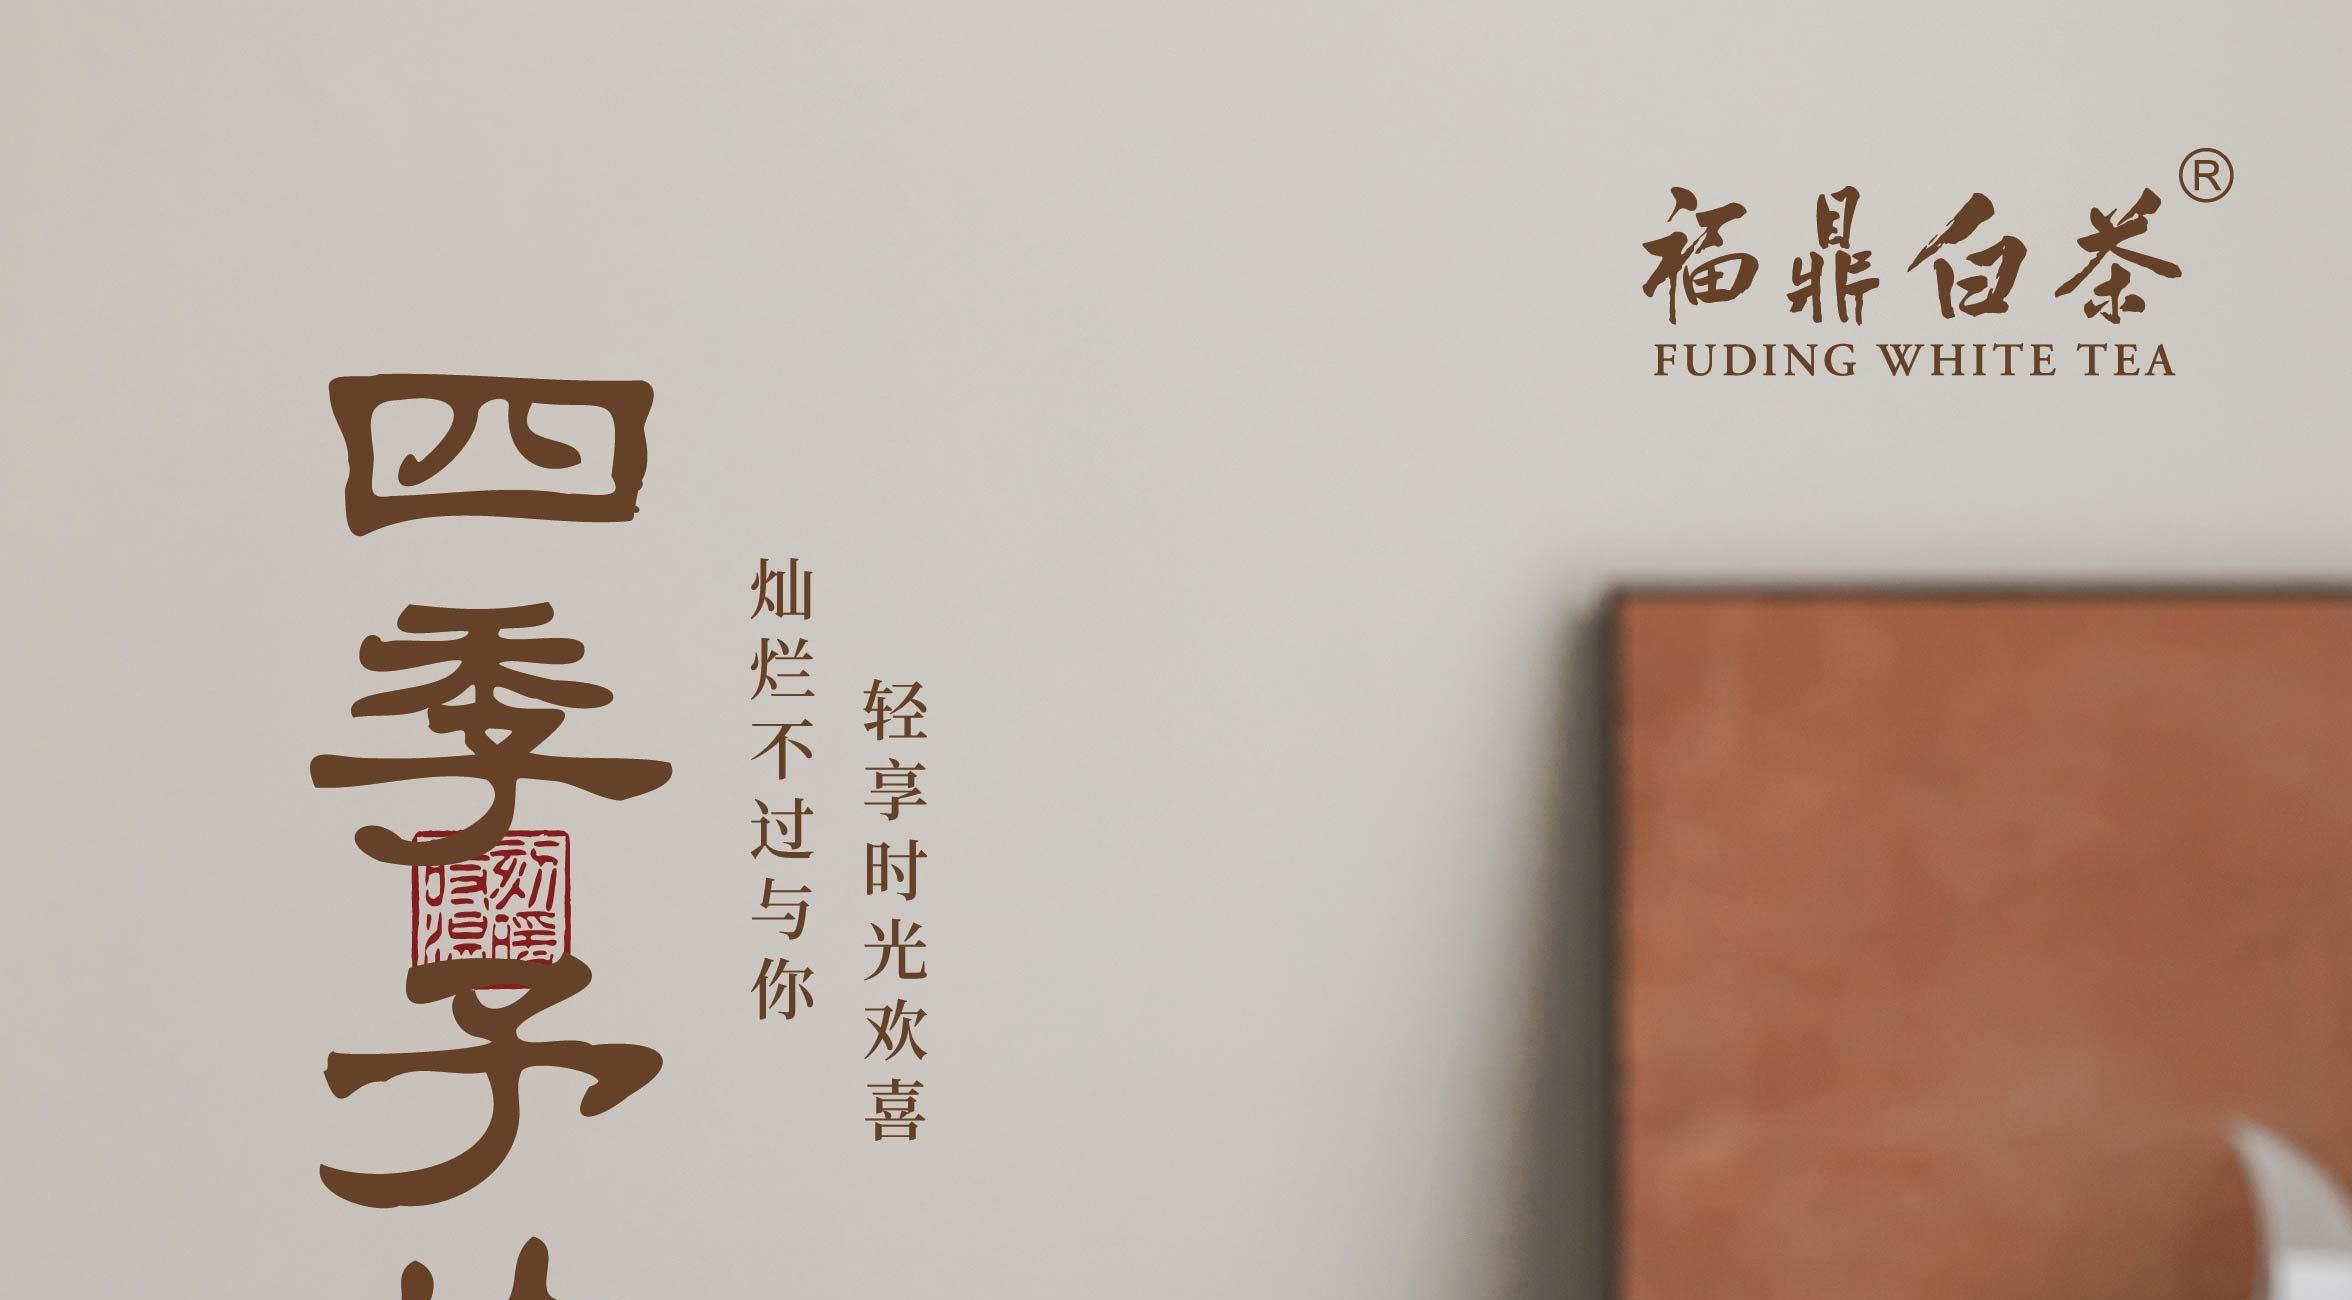 福鼎白茶®
FUDING WHITE TEA
四季子
灿烂不过与你
轻享时光欢喜